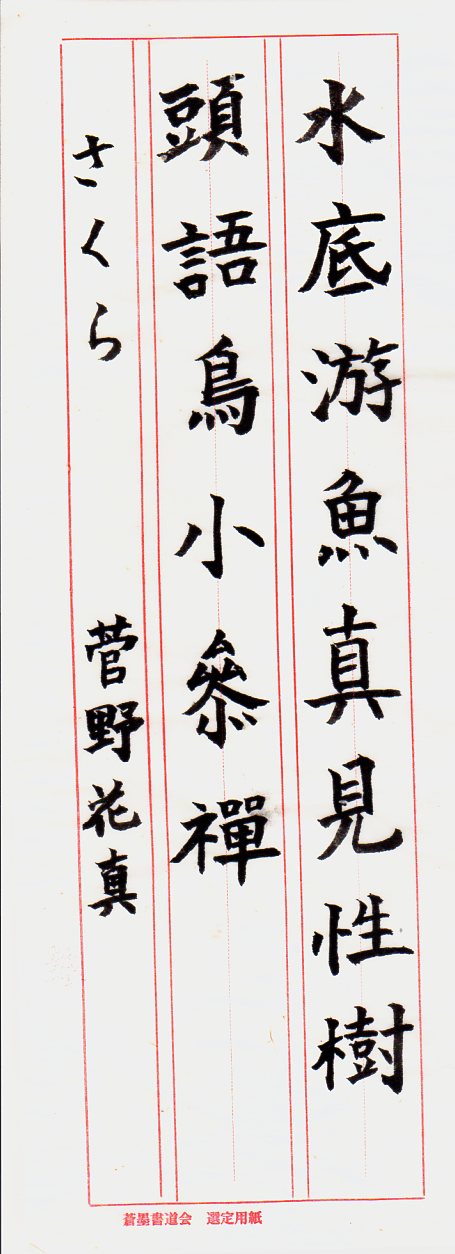 水底游魚真見性樹
頭語鳥小叅禪
さくら　菅野花真
蒼墨書道会　選定用紙